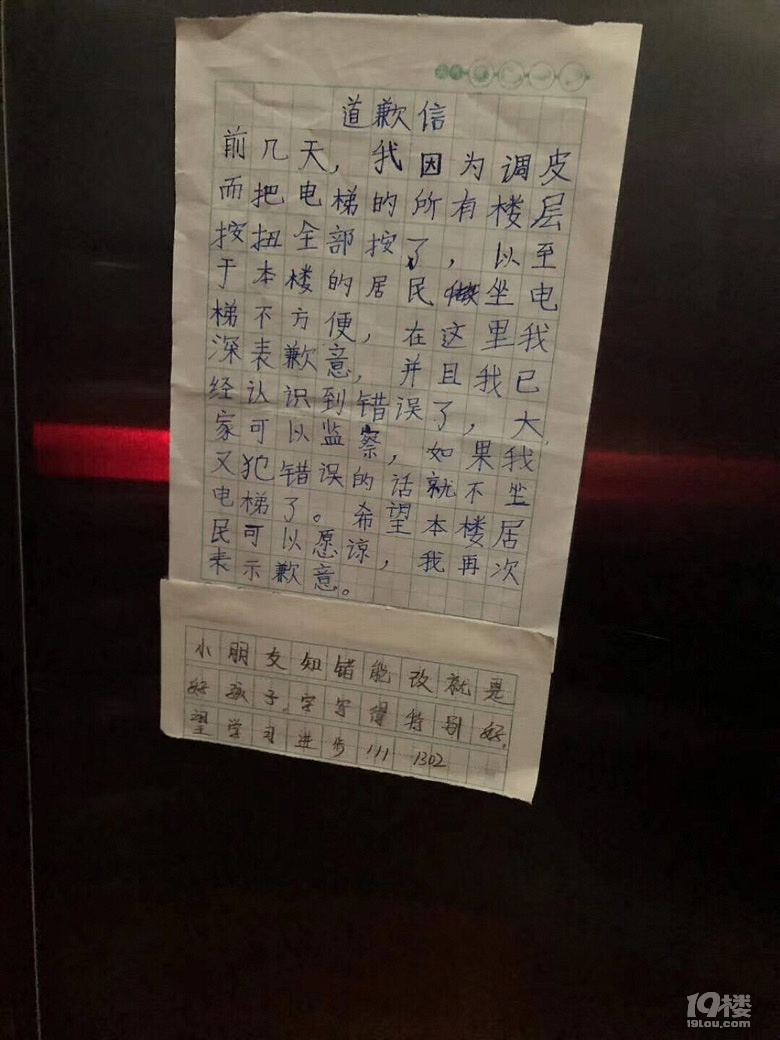 道歉信
前几天，我因为调皮
而把电梯的所有楼层
按扭全部按了，以至
于本楼的居民坐电
梯不方便，在这里我
深表歉意，并且我已
经认识到错误了，大
家可以监察，如果我
又犯错误的话就不坐
电梯了。希望本楼居
民可以愿谅，我再次
表示歉意。
小朋友知错能改就是
好孩子，字写得特别好，
望学习进步!!! 1302
19楼
19lou.com